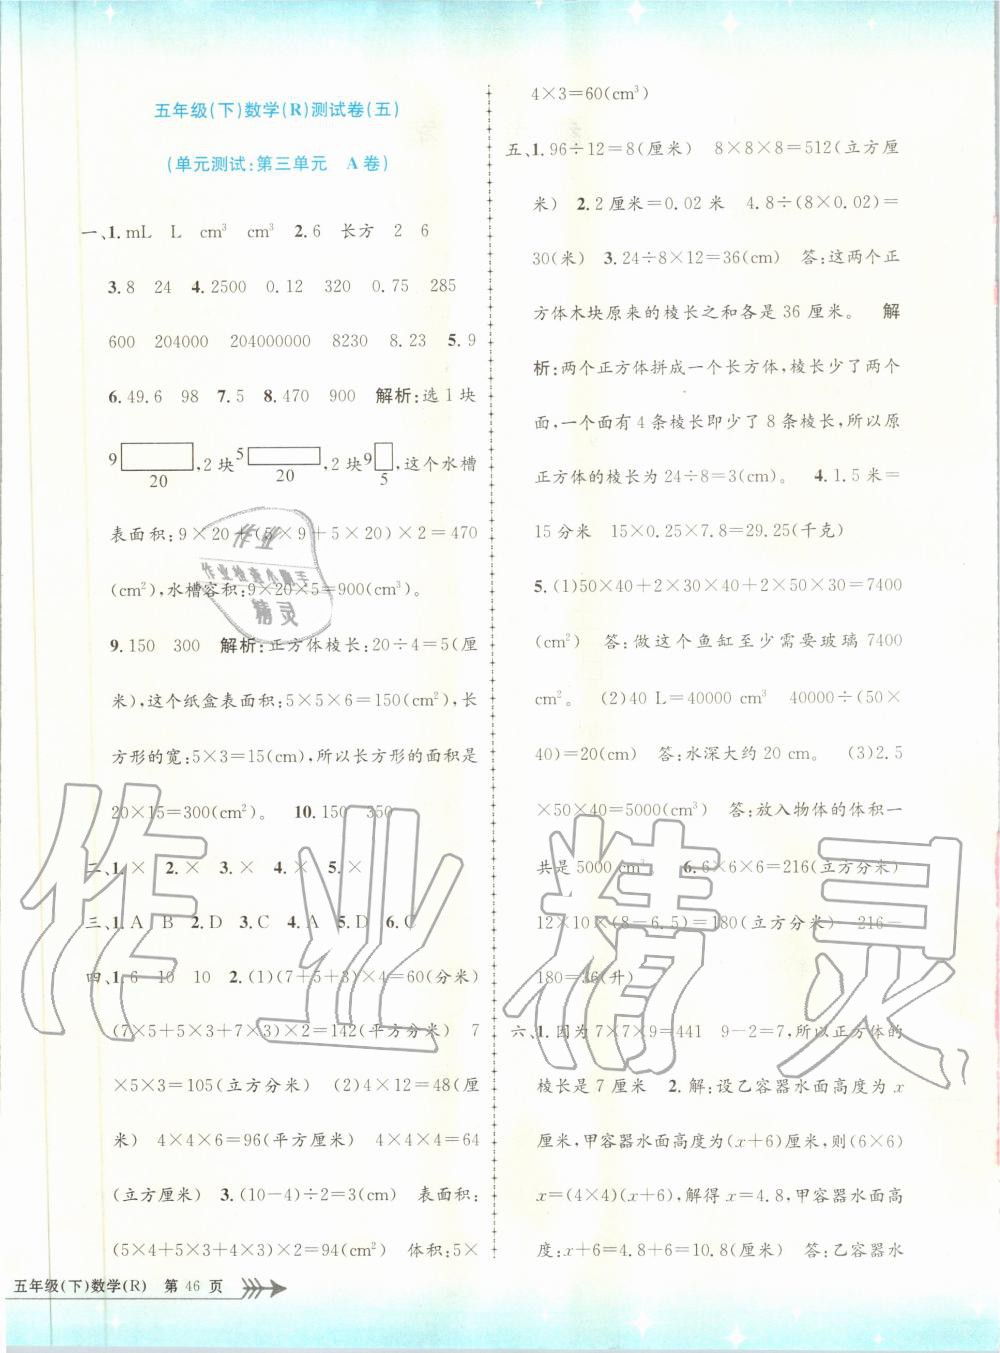 五年级(下)数学(R)测试卷(五)
(单元测试:第三单元 A卷)
一、1. mL L cm³ cm³ 2. 6 长方 2 6
3. 8 24 4. 2500 0.12 320 0.75 285
600 204000 204000000 8230 8.23 5. 9
6. 49.6 98 7. 5 8. 470 900 解析:选1块
9 20 ,2块 5 20 ,2块 9 5 ,这个水槽
表面积:9×20+(5×9+5×20)×2=470
(cm²),水槽容积:9×20×5=900(cm³)。
9. 150 300 解析:正方体棱长:20÷4=5(厘
米),这个纸盒表面积:5×5×6=150(cm²),长
方形的宽:5×3=15(cm),所以长方形的面积是
20×15=300(cm²)。 10. 150 350
二、1. × 2. × 3. × 4. × 5. ×
三、1. A B 2. D 3. C 4. A 5. D 6. C
四、1. 6 10 10 2. (1)(7+5+3)×4=60(分米)
(7×5+5×3+7×3)×2=142(平方分米) 7
×5×3=105(立方分米) (2)4×12=48(厘
米) 4×4×6=96(平方厘米) 4×4×4=64
(立方厘米) 3. (10-4)÷2=3(cm) 表面积:
(5×4+5×3+4×3)×2=94(cm²) 体积:5×
4×3=60(cm³)
五、1. 96÷12=8(厘米) 8×8×8=512(立方厘
米) 2. 2厘米=0.02米 4.8÷(8×0.02)=
30(米) 3. 24÷8×12=36(cm) 答:这两个正
方体木块原来的棱长之和各是36厘米。 解
析:两个正方体拼成一个长方体,棱长少了两个
面,一个面有4条棱长即少了8条棱长,所以原
正方体的棱长为24÷8=3(cm)。 4. 1.5米=
15分米 15×0.25×7.8=29.25(千克)
5. (1)50×40+2×30×40+2×50×30=7400
(cm²) 答:做这个鱼缸至少需要玻璃7400
cm²。 (2)40 L=40000 cm³ 40000÷(50×
40)=20(cm) 答:水深大约20 cm。 (3)2.5
×50×40=5000(cm³) 答:放入物体的体积一
共是5000 cm³。 6. 6×6×6=216(立方分米)
12×10×(8-6.5)=180(立方分米) 216-
180=36(升)
六、1. 因为7×7×9=441 9-2=7,所以正方体的
棱长是7厘米 2. 解:设乙容器水面高度为x
厘米,甲容器水面高度为(x+6)厘米,则(6×6)
x=(4×4)(x+6),解得x=4.8,甲容器水面高
度:x+6=4.8+6=10.8(厘米) 答:乙容器水
五年级(下)数学(R) 第46页
作业
作业检查小助手
精灵
作业精灵